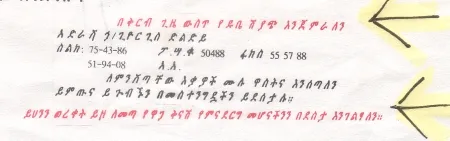 በቅርብ ጊዜ ውስጥ የዱቤ ሽያጭ እንጀምራለን
አድራሻ ጎ/ጊዮርጊስ ድልድይ
ስልክ: 75-43-86 ፖ.ሣ.ቁ 50488 ፋክስ 55 57 88
51-94-08 አ.አ.
ለምንሸጣቸው እቃዎች ሙሉ ዋስትና እንሰጣለን
ይምጡና ይጎብኙን በመስተንግዷችን ይደሰታሉ።
ይህንን ወረቀት ይዞ ለመጣ የዋጋ ቅናሽ የምናደርግ መሆናችንን በደስታ እንገልፃለን።